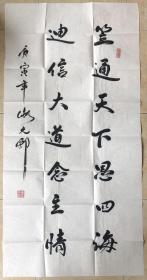 竺通天下恩四海
迪信大道念主情
庚寅年